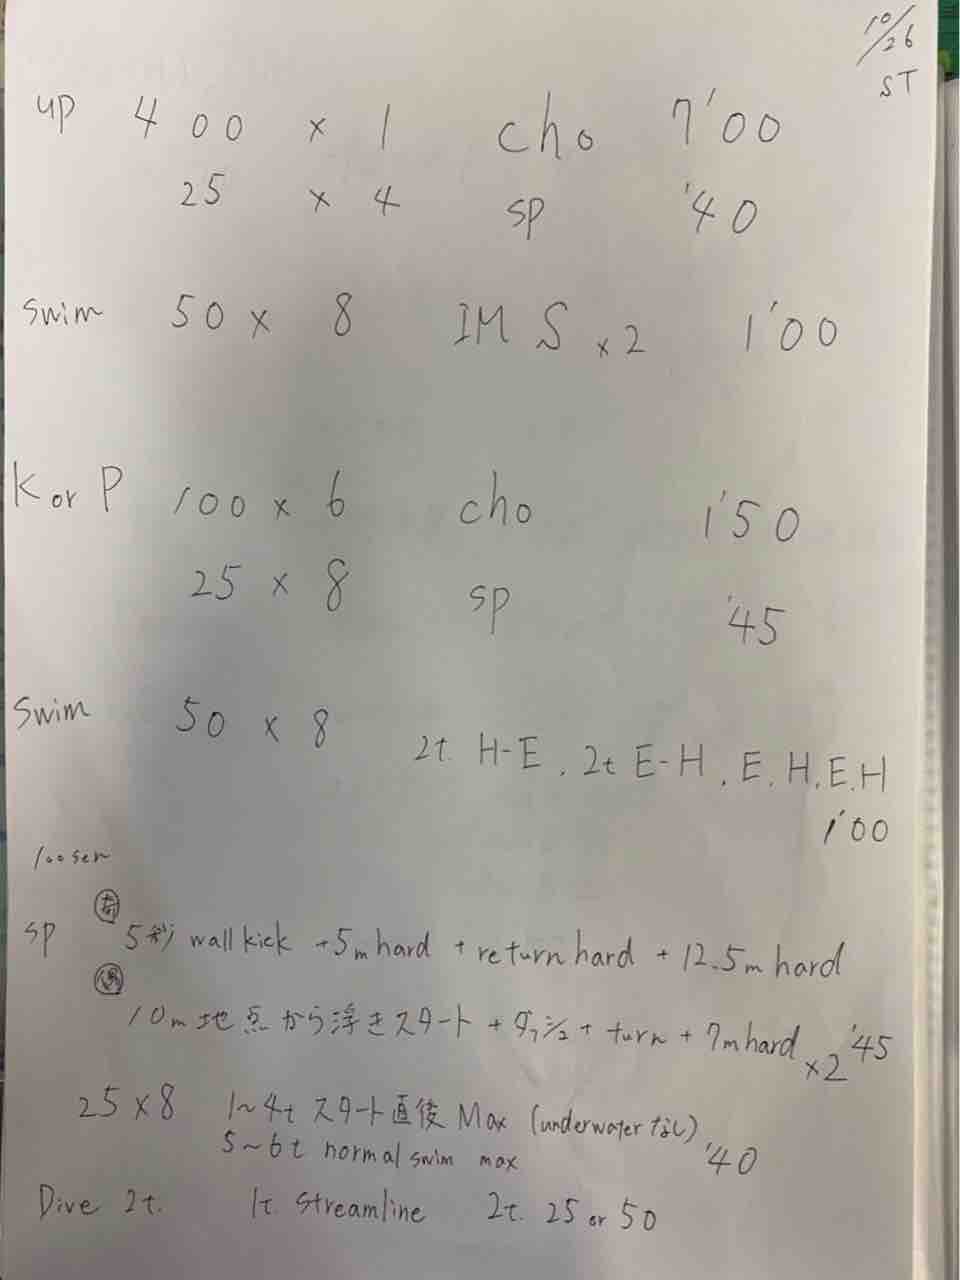 10/26
ST
up 400 × 1 cho 7'00
25 × 4 sp '40
Swim 50 × 8 IM S ×2 1'00
K or P 100 × 6 cho 1'50
25 × 8 sp '45
Swim 50 × 8 2t. H-E, 2t E-H, E, H, E, H
1'00
loosen
sp 5秒 wall kick +5m hard + return hard + 12.5m hard
10m地点から浮きスタート + ダッシュ + turn + 7m hard ×2 '45
25 × 8 1~4t スタート直後 Max (underwaterなし)
5~6t normal swim max '40
Dive 2t. 1t. streamline 2t. 25 or 50